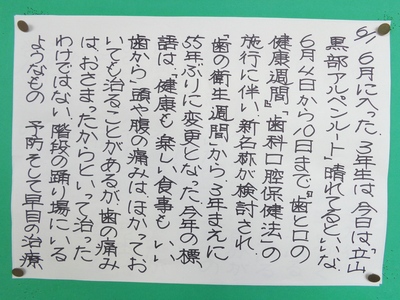 6/1 6月に入った.3年生は、今日は「立山
黒部アルペンルート」晴れてるといいな.
6月4日から10日まで、『歯と口の
健康週間』『歯科口腔保健法』の
施行に伴い、新名称が検討され、
「歯の衛生週間」から、3年まえに
55年ぶりに変更となった.今年の標
語は、「健康も 楽しい食事も いい
歯から」頭や腹の痛みは、ほかってお
いても治ることがあるが、歯の痛み
は、おさまったからといって治った
わけではない.階段の踊り場にいる
ようなもの 予防そして早目の治療